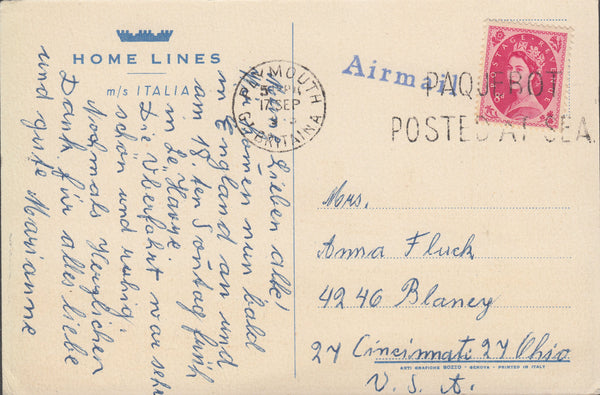 HOME LINES
m/s ITALIA
PLYMOUTH
17 SEP
GT. BRITAIN
Airmail
PAQUEBOT
POSTED AT SEA
POSTAGE REVENUE
8D
Lieben alle!
kommen nun bald
in England an und
am 18.ten Sontag früh
in "Le Havre".
Die Überfahrt war sehr
schön und ruhig.
Nochmals Herzlichen
Dank für alles liebe
und gute Marianne
Mrs.
Anna Fluck
4246 Blaney
27 Cincinnati 27 Ohio
U. S. A.
ARTI GRAFICHE BOZZO - GENOVA - PRINTED IN ITALY